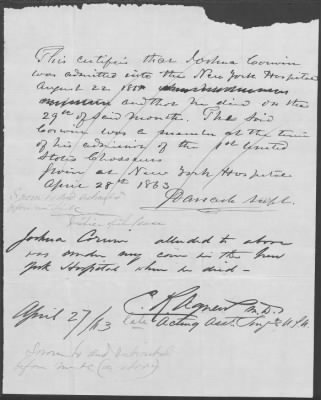 This certifies that Joshua Corwin
was admitted into the New York Hospital
August 22
and that he died on the
29th of said month. The said
Corwin was a member at the time
of his admission of the 1st United
States Chasseurs
Given at New York Hospital
April 28th 1863
Supt.
Sworn to and
before me
Justice of the Peace
Joshua Corwin alluded to above
was under my care in the New
York Hospital when he died -
C. R. Agnew M.D.
April 27/63
late Acting Asst. Surg. U.S.A.
Sworn to and subscribed
before me (as above)